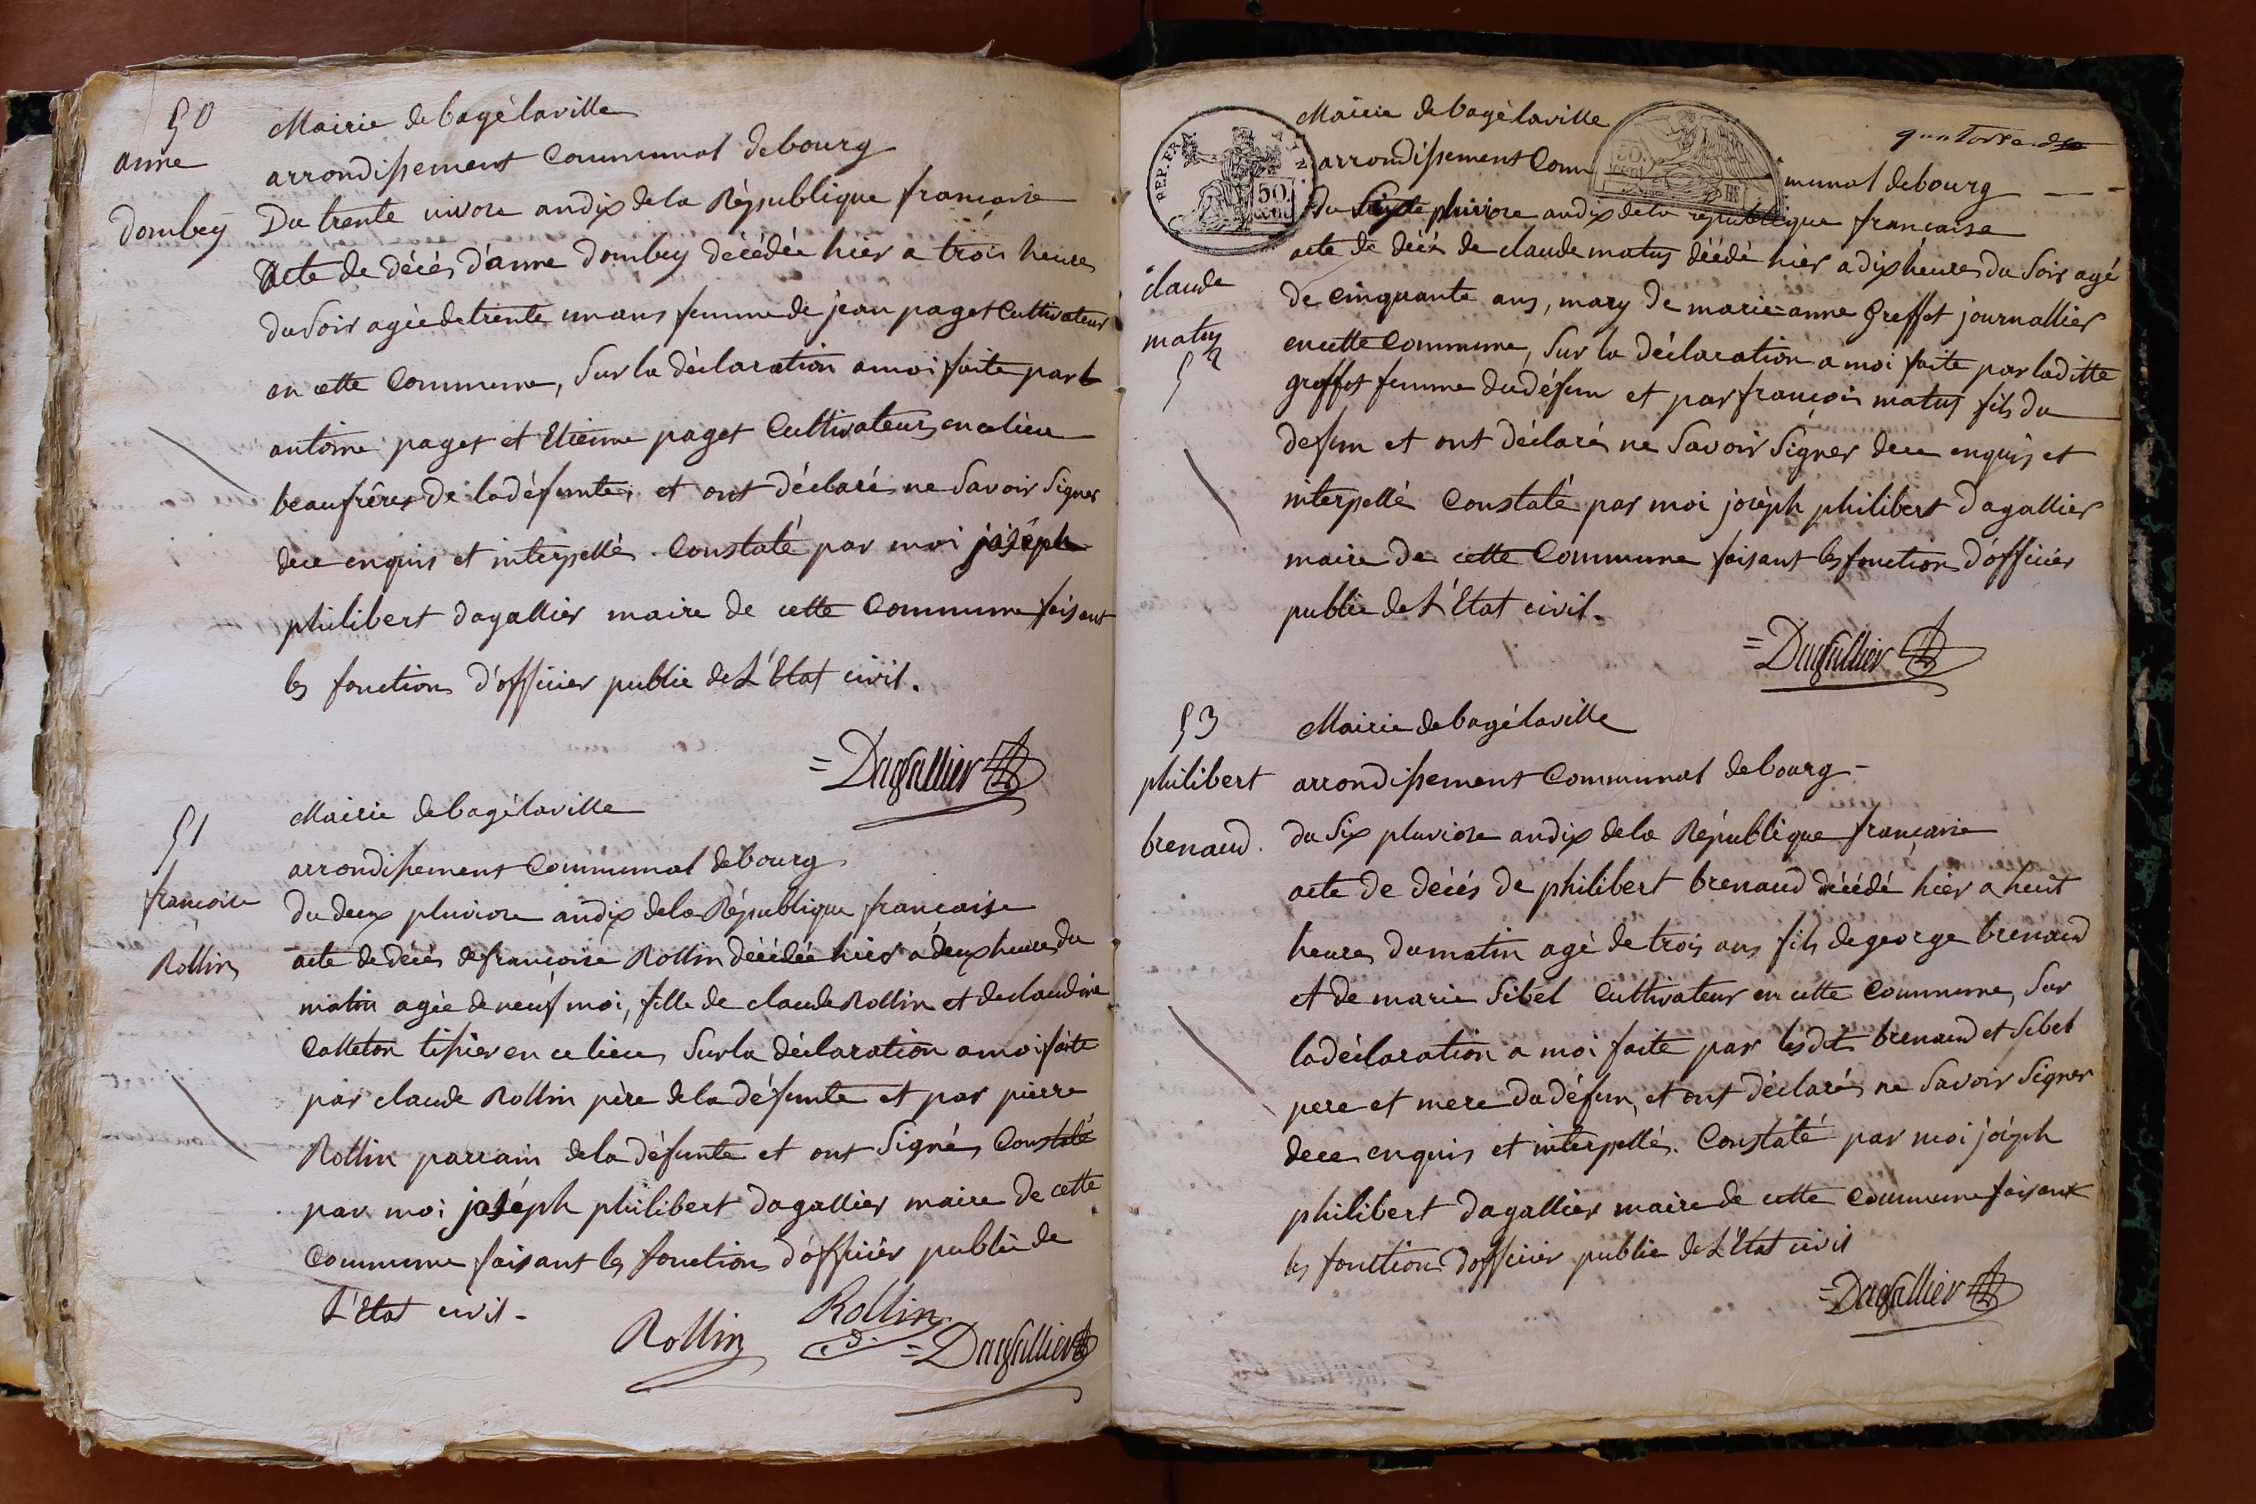 50
anne
dombey
Mairie de bagélaville
arrondissement Communal de bourg
Du trente nivose an dix de la République francaise
Acte de décés d'anne dombey décédée hier a trois heures
du soir agée de trente un ans femme de jean paget Cultivateur
en cette Commune, Sur la déclaration a moi faite par
antoine paget et Etienne paget Cultivateurs en ce lieu
beaufrêres de la défunte, et ont déclaré ne Savoir Signer
de ce enquis et interpellé. Constaté par moi joséph
philibert dagallier maire de cette Commune faisant
les fonctions d'officier public de L'Etat civil.
=Dagallier
51
francoise
Rollin
Mairie de bagélaville
arrondissement Communal de bourg
du deux pluviose an dix de la République francaise
acte de décés de francoise Rollin décédée hier a deux heures du
matin agée de neuf moi, fille de claude Rollin et de claudine
Calleton tissier en ce lieu, Sur la déclaration a moi faite
par claude Rollin père de la défunte et par pierre
Rollin parrain de la défunte et ont Signés Constaté
par moi joséph philibert dagallier maire de cette
Commune faisant les fonctions d'officier public de
L'Etat civil.
Rollin Rollin =Dagallier
REP. FRA
50
cent
quatorze
claude
matuy
52
Mairie de bagélaville
arrondissement Communal de bourg
du pluviose an dix de la republique francaise
acte de décé de claude matuy décédé hier a dix heures du Soir agé
de cinquante ans, mary de marie anne Greffet journallier
en cette Commune, Sur la déclaration a moi faite par laditte
greffet femme du défun et par francois matuy fils du
defun et ont déclarés ne Savoir Signer de ce enquis et
interpellé Constaté par moi joséph philibert dagallier
maire de cette Commune faisant les fonctions d'officier
public de L'Etat civil.
=Dagallier
53
philibert
brenaud.
Mairie de bagélaville
arrondissement Communal de bourg
du Six pluviose an dix de la République francaise
acte de décés de philibert brenaud décédé hier a huit
heures du matin agé de trois ans fils de george brenaud
et de marie Sibel Cultivateur en cette Commune, Sur
la déclaration a moi faite par lesdits brenaud et Sibel
pere et mere du défun, et ont déclarés ne Savoir Signer
de ce enquis et interpellés. Constaté par moi joséph
philibert dagallier maire de cette Commune faisant
les fonctions d'officier public de L'Etat civil
=Dagallier